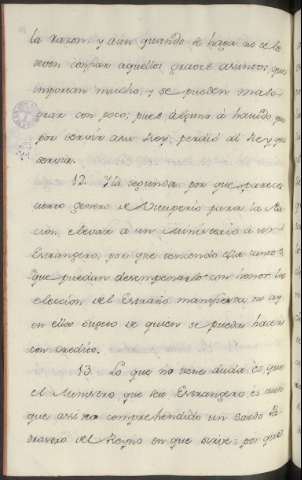 la razon; y aun quando se haga no se le
deven confiar aquellos graves asuntos, que
importan mucho, y se pueden malo
grar con poco; pues alguno á havido, que
por servir a su Rey, perdió al Rey que
servia.
12. Y la segunda, por que parece
cierto genero de vituperio para la Na
cion, elevar á un Ministerio á un
Estrangero, por que teniendo ella
que puedan desempeñarlo con honor, la
eleccion del Estraño manifiesta, no ay
en ella sugeto de quien se pueda hacer
con credito.
13. Lo que no tiene duda es, que
el Ministro que sea Estrangero, es
que comprehendido un
del Reyno en que sirve; por que